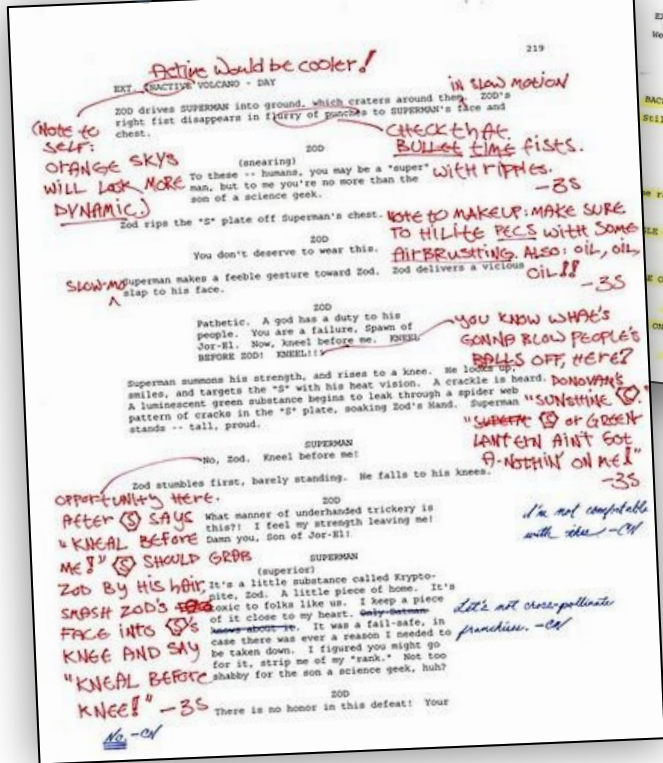 219
Active Would be cooler!
EXT. INACTIVE VOLCANO - DAY
IN SLOW MOTION
ZOD drives SUPERMAN into ground, which craters around them. ZOD's
right fist disappears in flurry of punches to SUPERMAN's face and
chest.
(Note to
SELF:
ORANGE SKYS
WILL LOOK MORE
DYNAMIC)
CHECK that.
BULLET TIME FISTS.
WITH RIPPLES.
-3S
ZOD
(sneering)
To these -- humans, you may be a "super"
man, but to me you're no more than the
son of a science geek.
Zod rips the "S" plate off Superman's chest.
NOTE TO MAKEUP: MAKE SURE
TO HILITE PECS WITH SOME
AIRBRUSHTING. ALSO: OIL, OIL,
OIL!!
-3S
ZOD
You don't deserve to wear this.
SLOW-MO
Superman makes a feeble gesture toward Zod. Zod delivers a vicious
slap to his face.
ZOD
Pathetic. A god has a duty to his
people. You are a failure, Spawn of
Jor-El. Now, kneel before me. KNEEL
BEFORE ZOD! KNEEL!!!
YOU KNOW WHAT'S
GONNA BLOW PEOPLE'S
BALLS OFF, HERE?
DONOVAN'S
"SUNSHINE S."
"SUPERM S OR GREEN
LANTERN AIN'T GOT
A-NOTHIN' ON ME!"
-3S
Superman summons his strength, and rises to a knee. He looks up,
smiles, and targets the "S" with his heat vision. A crackle is heard.
A luminescent green substance begins to leak through a spider web
pattern of cracks in the "S" plate, soaking Zod's Hand. Superman
stands -- tall, proud.
SUPERMAN
No, Zod. Kneel before me!
Zod stumbles first, barely standing. He falls to his knees.
OPPORTUNITY HERE.
AFTER S SAYS
"KNEAL BEFORE
ME!" S SHOULD GRAB
ZOD BY HIS HAIR,
SMASH ZOD'S
FACE INTO S's
KNEE AND SAY
"KNEAL BEFORE
KNEE!" -3S
No. -CN
ZOD
What manner of underhanded trickery is
this?! I feel my strength leaving me!
Damn you, Son of Jor-El!
I'm not comfortable
with this -CN
SUPERMAN
(superior)
It's a little substance called Krypto-
nite, Zod. A little piece of home. It's
toxic to folks like us. I keep a piece
of it close to my heart. Only Batman
knows about it. It was a fail-safe, in
case there was ever a reason I needed to
be taken down. I figured you might go
for it, strip me of my "rank." Not too
shabby for the son a science geek, huh?
Let's not cross-pollinate
franchises. -CN
ZOD
There is no honor in this defeat! Your